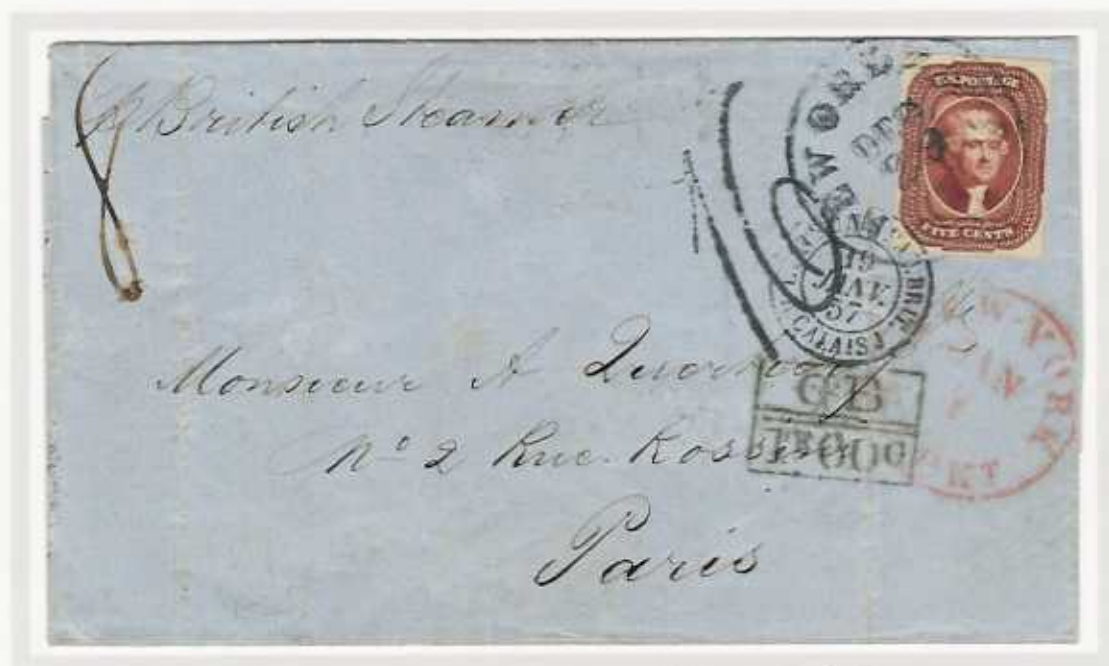 p British Steamer
8
NEW ORLE
DEC
U.S. POSTAGE
FIVE CENTS
BRIT.
19
JANV.
57
CALAIS
NEW-YORK
PKT
GB
1F60c
Monsieur A
No 2 Rue Rossini
Paris